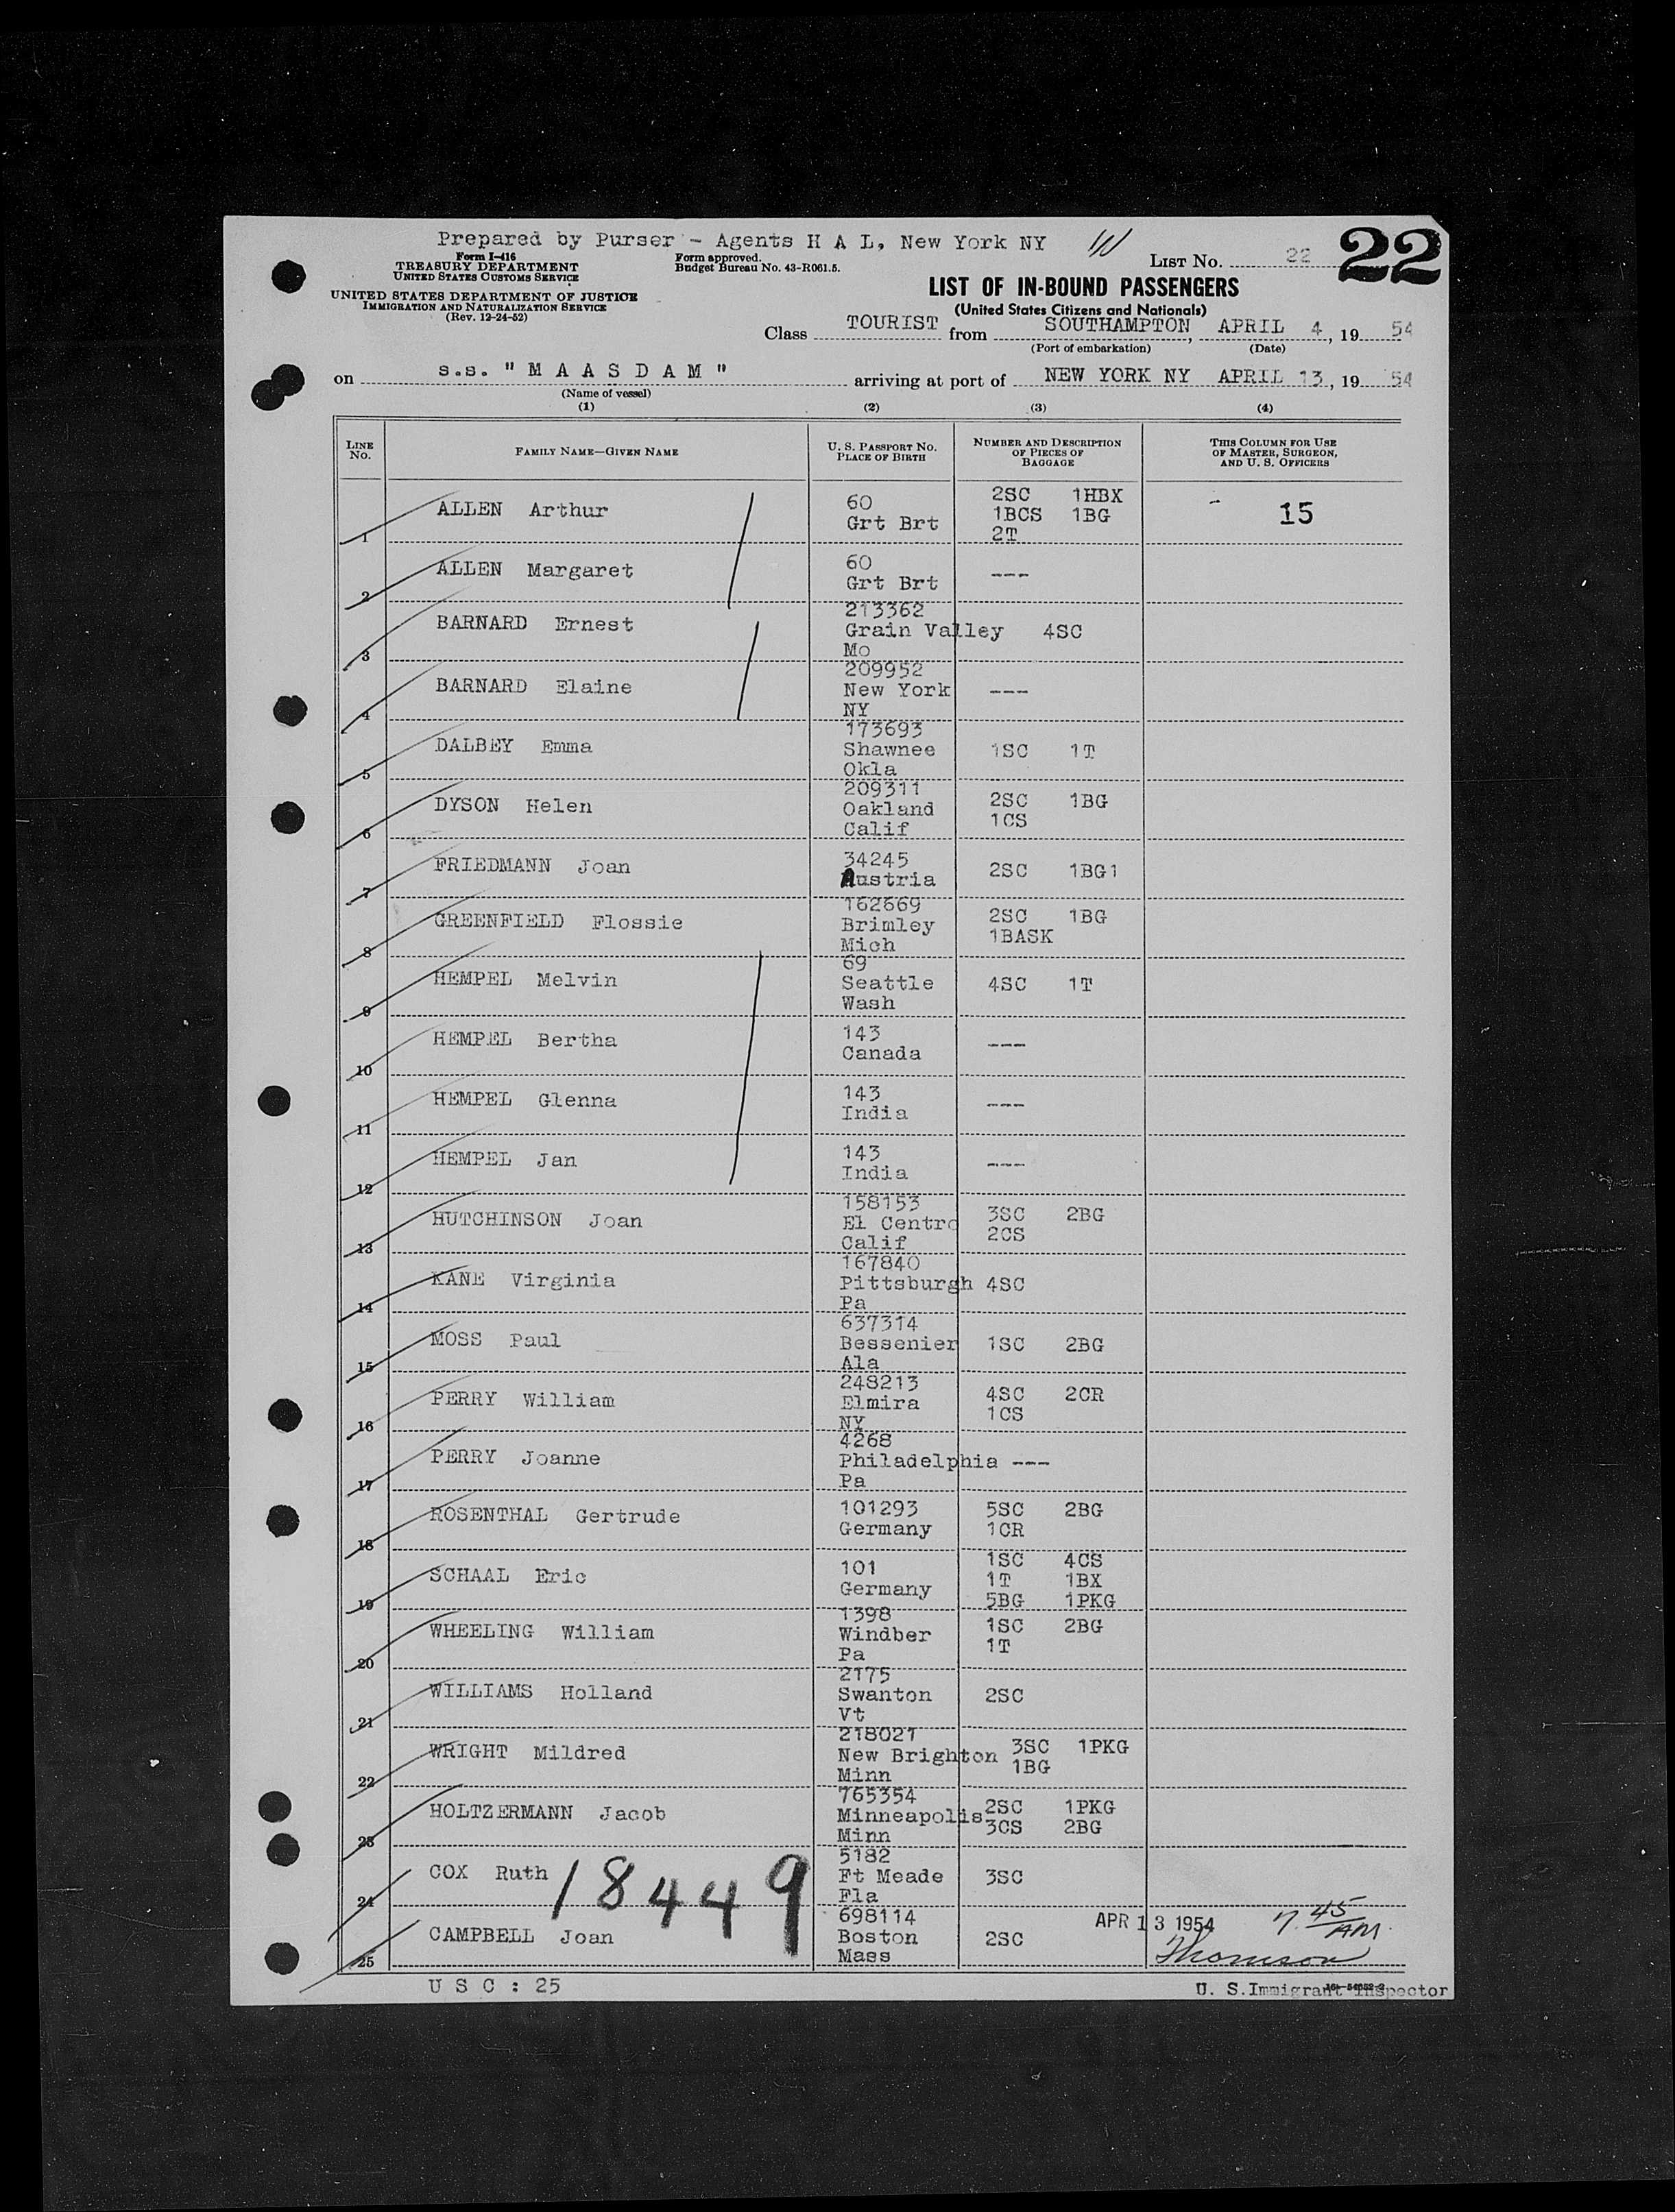 Prepared by Purser - Agents H A L, New York NY
Form I-416
TREASURY DEPARTMENT
UNITED STATES CUSTOMS SERVICE
UNITED STATES DEPARTMENT OF JUSTICE
IMMIGRATION AND NATURALIZATION SERVICE
(Rev. 12-24-52)
Form approved.
Budget Bureau No. 43-R061.5.
LIST NO. 22
22
LIST OF IN-BOUND PASSENGERS
(United States Citizens and Nationals)
Class TOURIST from SOUTHAMPTON, APRIL 4, 19 54
(Port of embarkation) (Date)
on s.s. " M A A S D A M " arriving at port of NEW YORK NY APRIL 13, 19 54
(Name of vessel)
(1) (2) (3) (4)
LINE NO. FAMILY NAME—GIVEN NAME U. S. PASSPORT NO. PLACE OF BIRTH NUMBER AND DESCRIPTION OF PIECES OF BAGGAGE THIS COLUMN FOR USE OF MASTER, SURGEON, AND U. S. OFFICERS
1 ALLEN Arthur 60 Grt Brt 2SC 1HBX 1BCS 1BG 2T - 15
2 ALLEN Margaret 60 Grt Brt ---
3 BARNARD Ernest 213362 Grain Valley Mo 4SC
4 BARNARD Elaine 209952 New York NY ---
5 DALBEY Emma 173693 Shawnee Okla 1SC 1T
6 DYSON Helen 209311 Oakland Calif 2SC 1BG 1CS
7 FRIEDMANN Joan 34245 Austria 2SC 1BG1
8 GREENFIELD Flossie 162669 Brimley Mich 2SC 1BG 1BASK
9 HEMPEL Melvin 69 Seattle Wash 4SC 1T
10 HEMPEL Bertha 143 Canada ---
11 HEMPEL Glenna 143 India ---
12 HEMPEL Jan 143 India ---
13 HUTCHINSON Joan 158153 El Centro Calif 3SC 2BG 2CS
14 KANE Virginia 167840 Pittsburgh Pa 4SC
15 MOSS Paul 637314 Bessenier Ala 1SC 2BG
16 PERRY William 248213 Elmira NY 4SC 2CR 1CS
17 PERRY Joanne 4268 Philadelphia Pa ---
18 ROSENTHAL Gertrude 101293 Germany 5SC 2BG 1CR
19 SCHAAL Eric 101 Germany 1SC 4CS 1T 1BX 5BG 1PKG
20 WHEELING William 1398 Windber Pa 1SC 2BG 1T
21 WILLIAMS Holland 2175 Swanton Vt 2SC
22 WRIGHT Mildred 218021 New Brighton Minn 3SC 1PKG 1BG
23 HOLTZERMANN Jacob 765354 Minneapolis Minn 2SC 1PKG 3CS 2BG
24 COX Ruth 5182 Ft Meade Fla 3SC
18449
25 CAMPBELL Joan 698114 Boston Mass 2SC
APR 13 1954 7.45 AM.
Thomson
U S C : 25
U. S. Immigrant Inspector